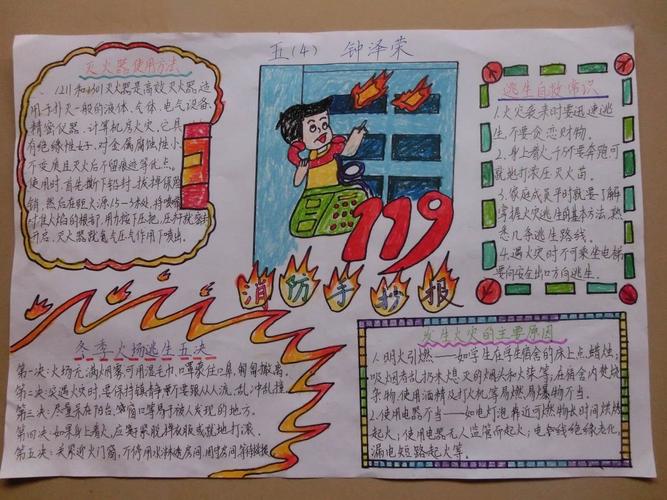 五(4) 钟泽荣
灭火器使用方法
1211和1301灭火器是高效灭火器,适
用于扑灭一般的液体、气体、电气设备、
精密仪器、计算机房火灾,它具
有绝缘性好,对金属腐蚀性小,
不变质且灭火后不留痕迹等优点。
使用时首先撕下铅封,拔掉保险
销,然后在距火源1.5-3米处,将喷嘴
对准火焰的根部,用力按下压把,压杆就
开启。灭火器就氮气压气作用下喷出。
119
消防手抄报
逃生自救常识
1.火灾袭来时要迅速逃
生,不要贪恋财物。
2.身上着火,千万不要奔跑可
就地打滚压灭火苗。
3.家庭成员平时就要了解
掌握火灾逃生的基本方法,熟
悉几条逃生路线。
4.遇火灾时不可乘坐电梯
要向安全出口方向逃生。
冬季火场逃生五决
第一决:火场充满烟雾可用湿毛巾、口罩蒙住口鼻,匍匐撤离。
第二决:突遇火灾时,要保持镇静,不要跟从人流、乱冲乱撞
第三决:尽量呆在阳台、窗口等易于被人发现的地方。
第四决:如果身上着火,应赶紧脱掉衣服或就地打滚。
第五决:关紧迎火门窗,不停用水淋透房间,用房间等待救援。
发生火灾的主要原因
1.明火引燃——如学生在学生宿舍的床上点蜡烛,
吸烟者乱扔未熄灭的烟头和火柴等,在宿舍内焚烧
杂物、使用酒精及打火机等易燃易爆物不当。
2.使用电器不当——如电灯泡靠近可燃物长时间烘烤
起火;使用电器无人监管而起火;电Mixed线绝缘老化,
漏电短路起火等。